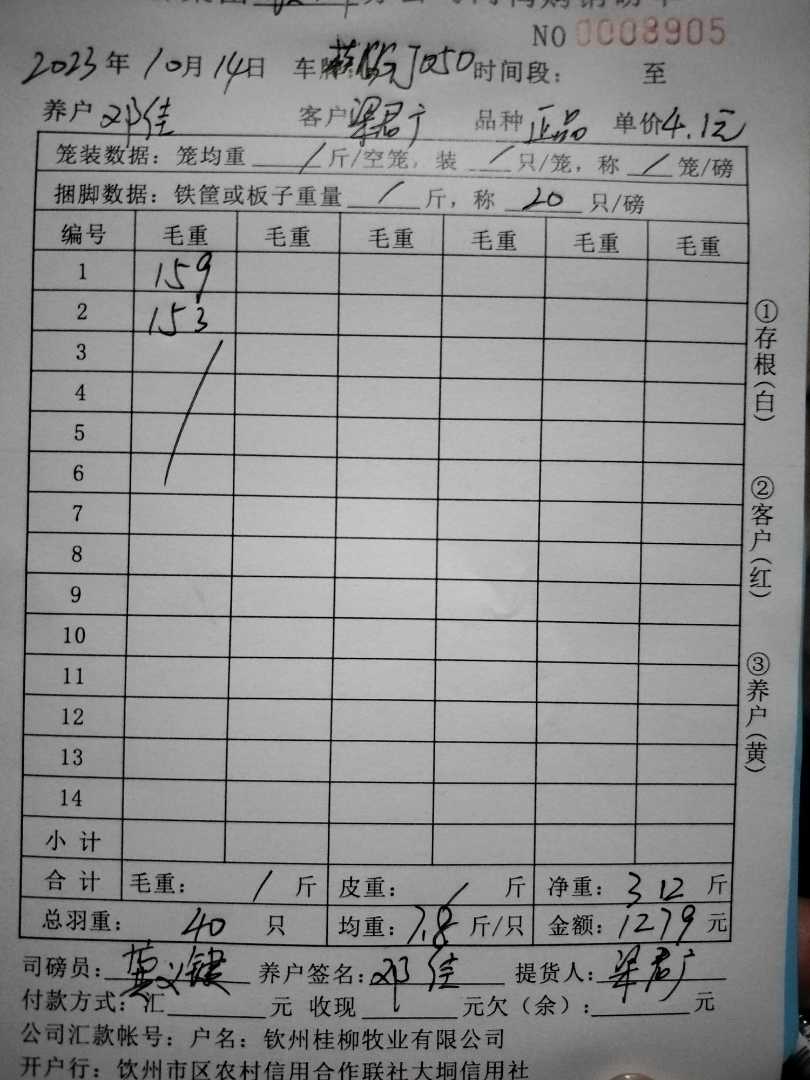 NO 0008905
2023年10月14日 车牌 J050 时间段： 至
养户 邓佳 客户 梁君广 品种 正品 单价 4.1元
笼装数据：笼均重 / 斤/空笼，装 / 只/笼，称 / 笼/磅
捆脚数据：铁筐或板子重量 / 斤，称 20 只/磅
编号 毛重 毛重 毛重 毛重 毛重 毛重
1 159
2 153
3 /
4
5
6
7
8
9
10
11
12
13
14
小计
合计 毛重： / 斤 皮重： / 斤 净重：312 斤
总羽重： 40 只 均重：7.8 斤/只 金额：1279 元
司磅员：莫义键 养户签名：邓佳 提货人：梁君广
付款方式：汇 元 收现 元欠（余）： 元
公司汇款帐号：户名：钦州桂柳牧业有限公司
开户行：钦州市区农村信用合作联社大垌信用社
①存根（白）
②客户（红）
③养户（黄）